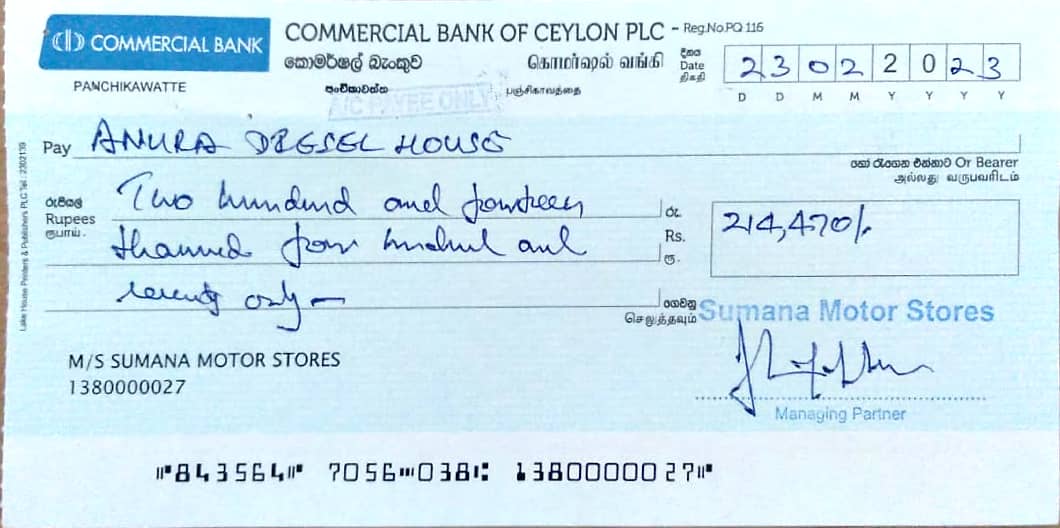 COMMERCIAL BANK
COMMERCIAL BANK OF CEYLON PLC - Reg.No.PQ 116
කොමර්ෂල් බැංකුව கொமர்ஷல் வங்கி
PANCHIKAWATTE පංචිකාවත්ත பஞ்சிகாவத்தை
A/C PAYEE ONLY
දිනය
Date 23022023
திகதி
D D M M Y Y Y Y
Pay ANURA DIESEL HOUSE
හෝ රැගෙන එන්නාට Or Bearer
அல்லது வருபவரிடம்
රුපියල් Two hundred and fourteen
Rupees
ரூபாய்
thousand four hundred and
seventy only
රු.
Rs. 214,470/-
ரூ.
ගෙවනු
செலுத்தவும்
Sumana Motor Stores
M/S SUMANA MOTOR STORES
1380000027
Managing Partner
Lake House Printers & Publishers PLC Tel : 2302139
⑈843564⑈ 7056⑉038⑆ 1380000027⑈